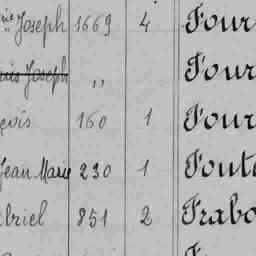 Joseph 1669 4 Four
Joseph " Four
160 1 Four
Jean Marie 230 1 Fout
briel 851 2 Frabo